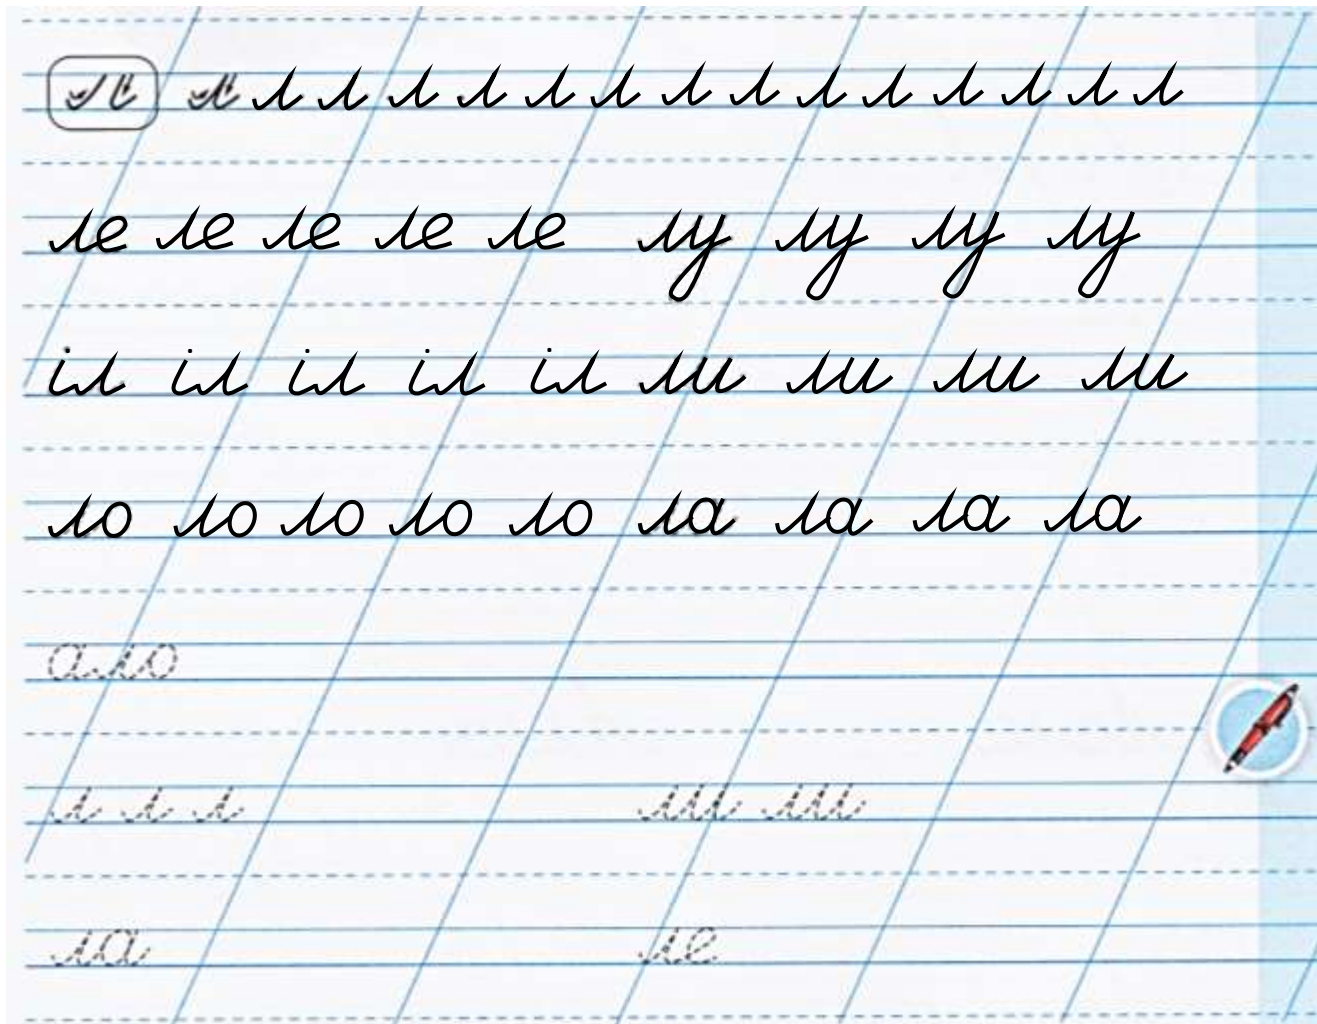 л л л л л л л л л л л л л л л
ле ле ле ле ле лу лу лу лу
іл іл іл іл іл ли ли ли ли
ло ло ло ло ло ла ла ла ла
ало
л л л ли ли
ла ле